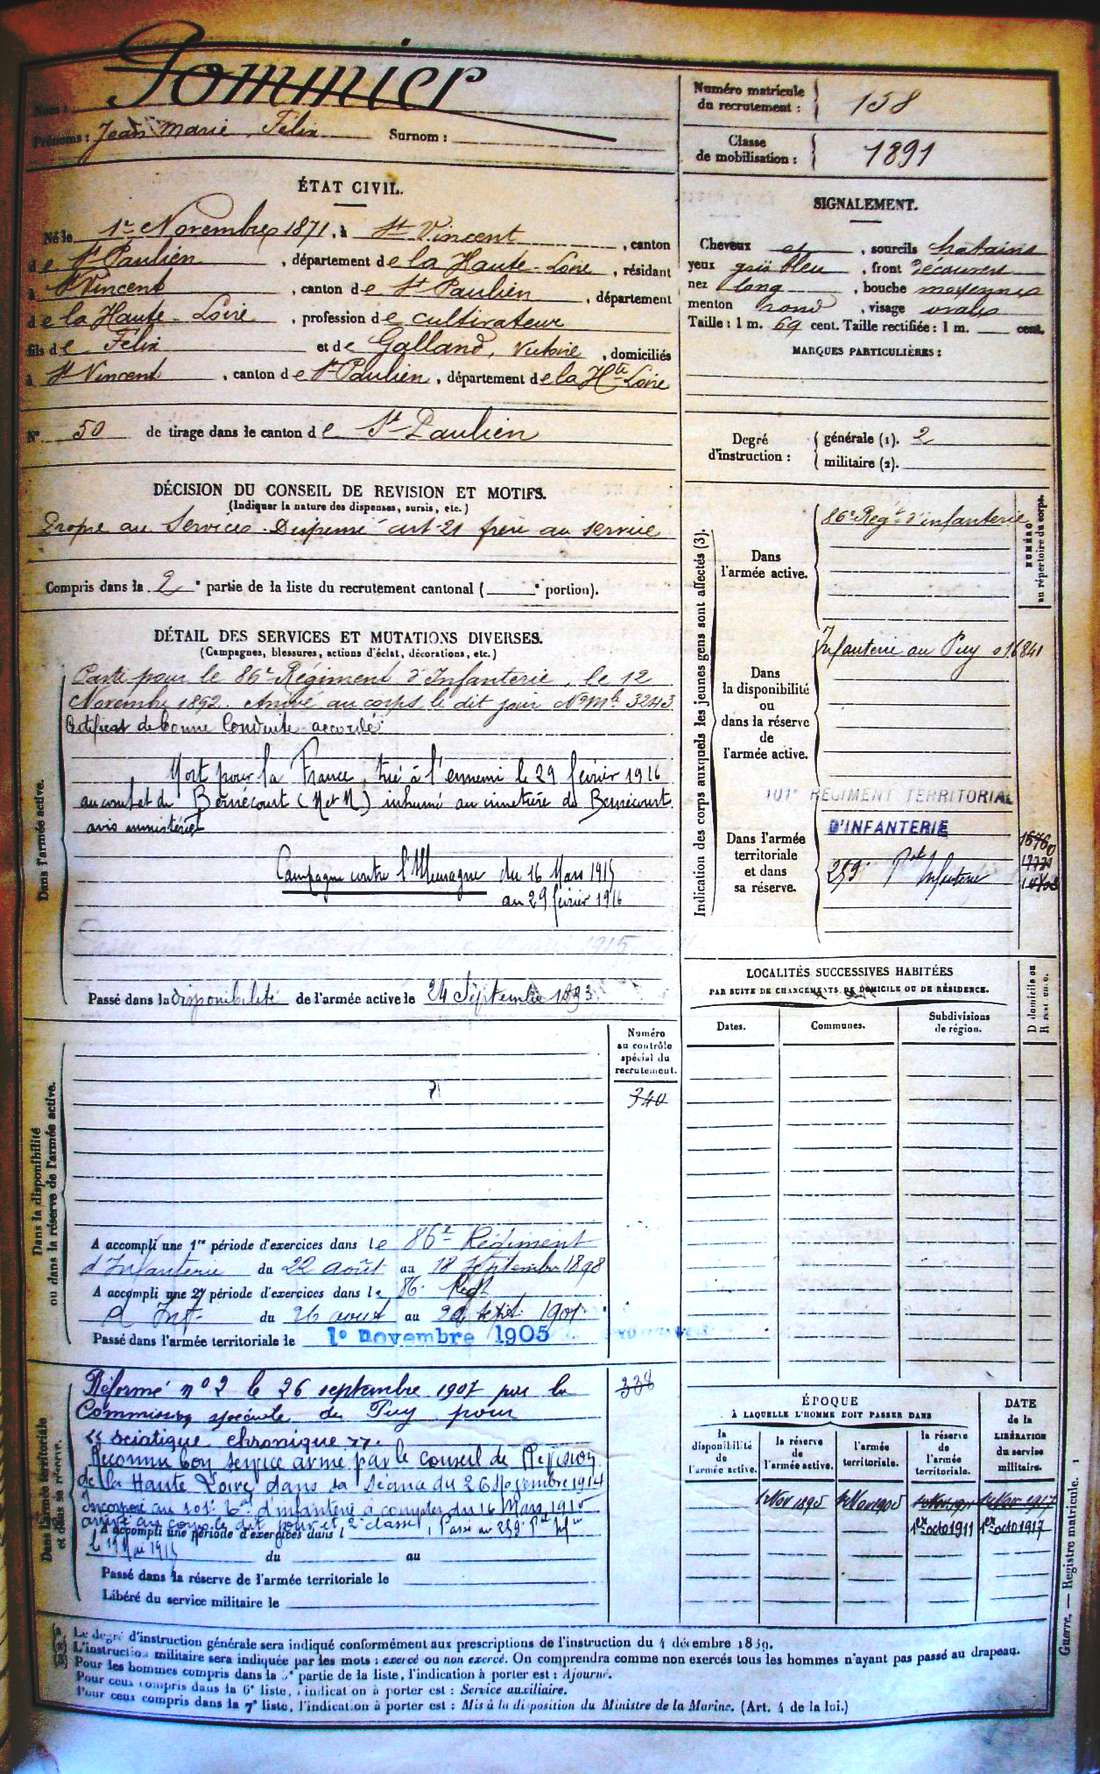 Nom : Pommier
Prénoms : Jean Marie Félix Surnom :
Numéro matricule du recrutement : 158
Classe de mobilisation : 1891
ÉTAT CIVIL.
Né le 1er Novembre 1871, à St Vincent, canton
de St Paulien, département de la Haute-Loire, résidant
à St Vincent, canton de St Paulien, département
de la Haute-Loire, profession de cultivateur
fils de Félix et de Galland, Victoire, domiciliés
à St Vincent, canton de St Paulien, département de la Hte Loire
N° 50 de tirage dans le canton de St Paulien
SIGNALEMENT.
Cheveux et, sourcils chatains
yeux gris bleu, front découvert
nez long, bouche moyenne
menton rond, visage ovale
Taille : 1 m. 69 cent. Taille rectifiée : 1 m. cent.
MARQUES PARTICULIÈRES :
Degré d'instruction : générale (1). 2
militaire (2).
DÉCISION DU CONSEIL DE REVISION ET MOTIFS.
(Indiquer la nature des dispenses, sursis, etc.)
Propre au Service. Dispensé art 21 frère au service
Compris dans la 2e partie de la liste du recrutement cantonal ( e portion).
DÉTAIL DES SERVICES ET MUTATIONS DIVERSES.
(Campagnes, blessures, actions d'éclat, décorations, etc.)
Dans l'armée active.
Parti pour le 86e Régiment d'Infanterie, le 12
Novembre 1892. Arrivé au corps le dit jour N° Mle 3243
Certificat de bonne Conduite accordé
Mort pour la France, tué à l'ennemi le 29 février 1916
au combat de Bernécourt (M et M) inhumé au cimetière de Bernécourt
avis ministériel
Campagne contre l'Allemagne du 16 Mars 1915
au 29 février 1916
Passé dans la disponibilité de l'armée active le 24 Septembre 1893
Indication des corps auxquels les jeunes gens sont affectés (3).
NUMÉRO au répertoire du corps.
Dans l'armée active. 86e Regt d'infanterie
Dans la disponibilité ou dans la réserve de l'armée active. Infanterie au Puy 016841
Dans l'armée territoriale et dans sa réserve. 101e REGIMENT TERRITORIAL
D'INFANTERIE
259e Rt Infanterie
LOCALITÉS SUCCESSIVES HABITÉES
PAR SUITE DE CHANGEMENTS DE DOMICILE OU DE RÉSIDENCE.
Dates. Communes. Subdivisions de région.
Dans la disponibilité ou dans la réserve de l'armée active.
Numéro au contrôle spécial du recrutement.
340
A accompli une 1re période d'exercices dans le 86e Régiment
d'Infanterie du 22 août au 18 Septembre 1898
A accompli une 2e période d'exercices dans le 86e Regt
d'Inf. du 26 aout au 22 Sept. 1901
Passé dans l'armée territoriale le 1e novembre 1905
Dans l'armée territoriale et dans sa réserve.
338
Réformé n° 2 le 26 septembre 1907 par la
Commission spéciale du Puy pour
"sciatique chronique".
Reconnu bon service armé par le conseil de Révision
de la Haute Loire dans sa séance du 26 Novembre 1914
Incorporé au 101e Rt d'infanterie à compter du 16 Mars 1915
arrivé au corps le dit jour et 2e classe, Passé au 259e Rt Inf
le 19 Mai 1915
A accompli une période d'exercices dans l
du au
Passé dans la réserve de l'armée territoriale le
Libéré du service militaire le
ÉPOQUE
À LAQUELLE L'HOMME DOIT PASSER DANS
DATE de la LIBÉRATION du service militaire.
la disponibilité de l'armée active.
la réserve de l'armée active.
l'armée territoriale.
la réserve de l'armée territoriale.
1 Nov 1895 1 Nov 1905 1 Nov 1911 1 Nov 1917
1er octo 1911 1er octo 1917
Le degré d'instruction générale sera indiqué conformément aux prescriptions de l'instruction du 4 décembre 1889.
L'instruction militaire sera indiquée par les mots : exercé ou non exercé. On comprendra comme non exercés tous les hommes n'ayant pas passé au drapeau.
Pour les hommes compris dans la partie de la liste, l'indication à porter est : Ajourné.
Pour ceux compris dans la 6e liste, l'indication à porter est : Service auxiliaire.
Pour ceux compris dans la 7e liste, l'indication à porter est : Mis à la disposition du Ministre de la Marine. (Art. 4 de la loi.)
Guerre. — Registre matricule. 1